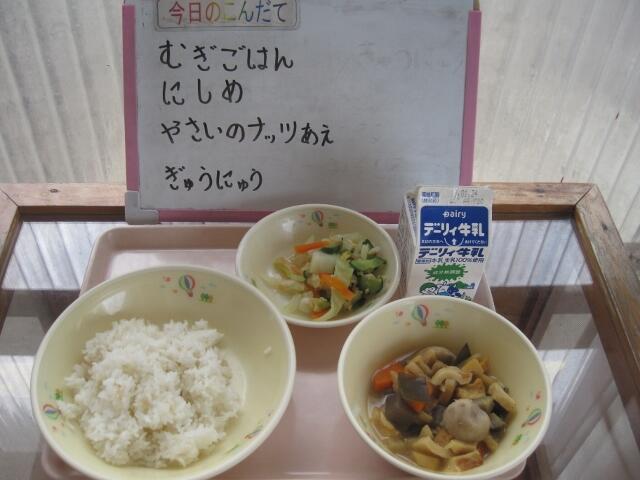 今日のこんだて
むぎごはん
にしめ
やさいのナッツあえ
ぎゅうにゅう
Dairy
デーリィ牛乳
デーリィ牛乳